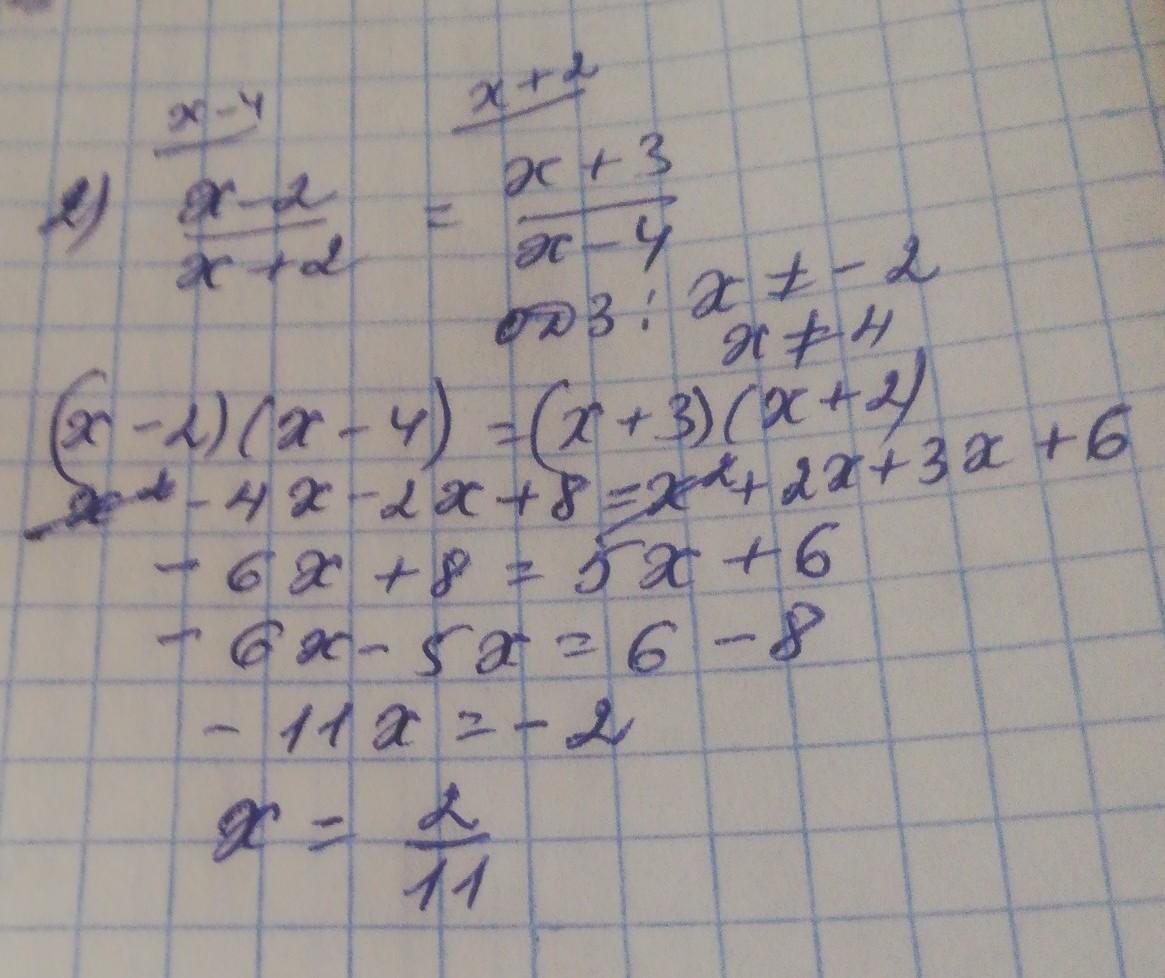 x-4 x+2
2) x-2/x+2 = x+3/x-4
ОДЗ: x ≠ -2
x ≠ 4
(x-2)(x-4) = (x+3)(x+2)
x²-4x-2x+8=x²+2x+3x+6
-6x+8=5x+6
-6x-5x=6-8
-11x=-2
x = 2/11